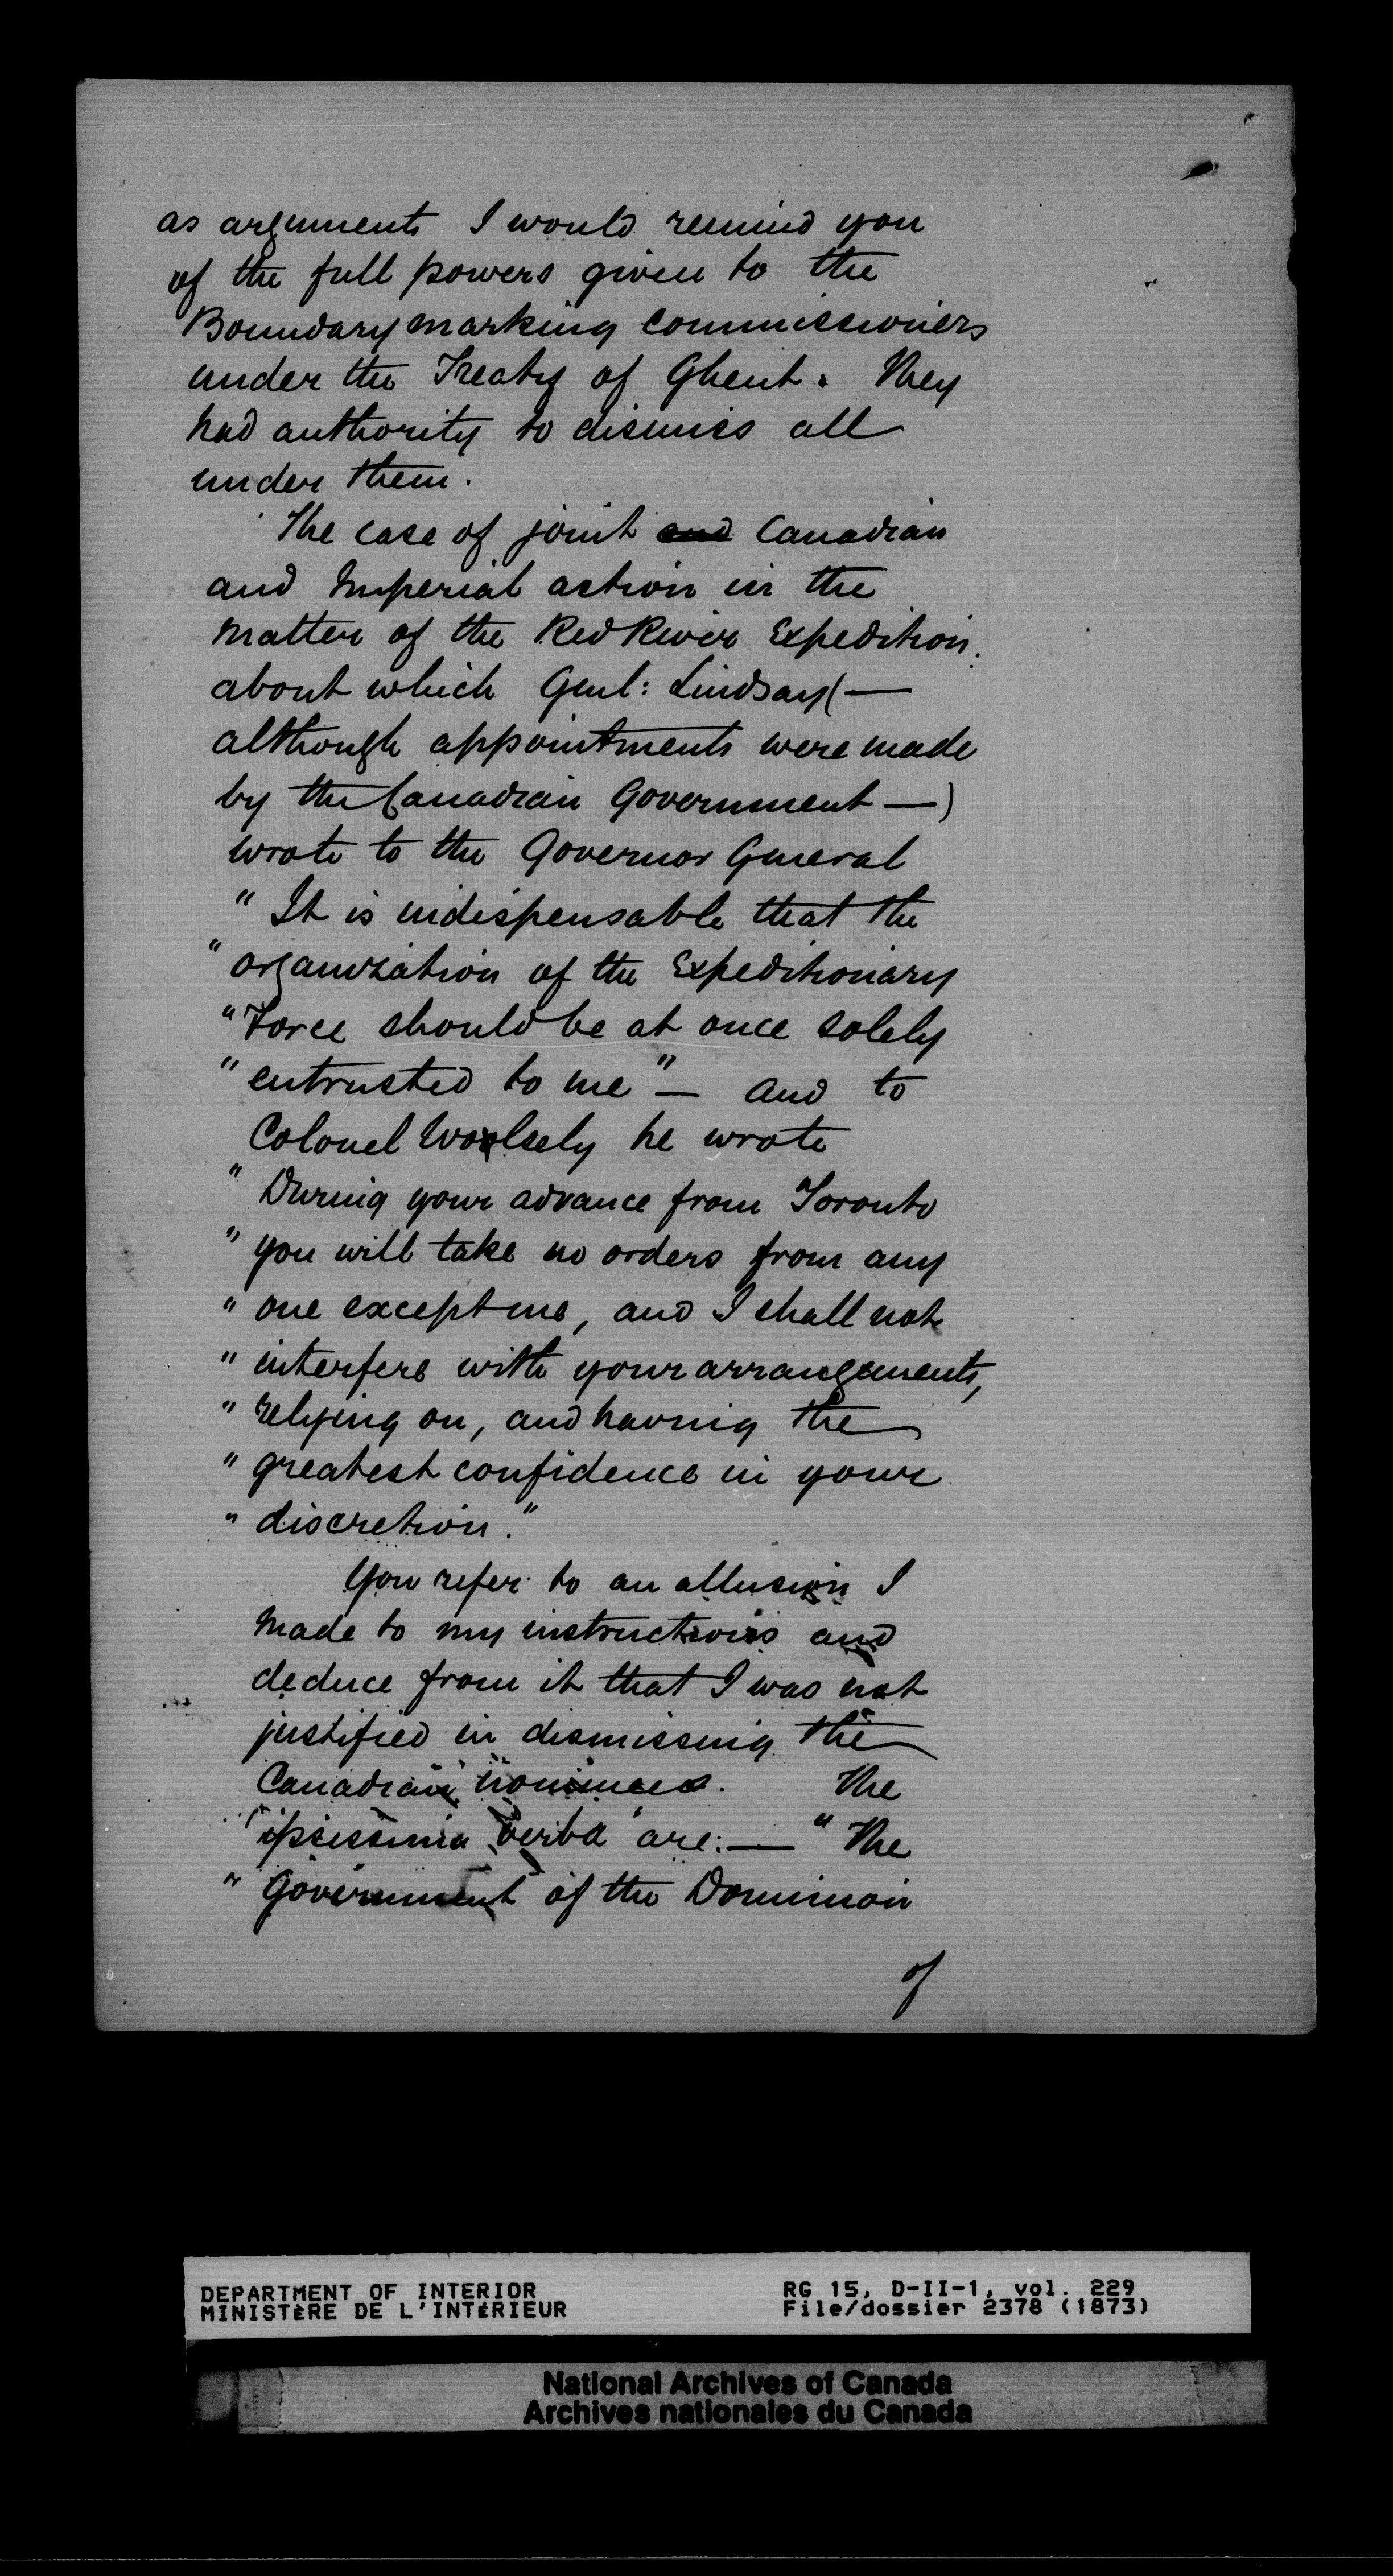 as arguments I would remind you
of the full powers given to the
Boundary marking commissioners
under the Treaty of Ghent. They
had authority to dismiss all
under them.
The case of joint and Canadian
and Imperial action in the
matter of the Red River Expedition.
about which Genl: Lindsay (—
although appointments were made
by the Canadian Government —)
wrote to the Governor General
" It is indispensable that the
" organization of the Expeditionary
" Force should be at once solely
" entrusted to me" — and to
Colonel Woolsely he wrote
" During your advance from Toronto
" you will take no orders from any
" one except me, and I shall not
" interfere with your arrangements,
" relying on, and having the
" greatest confidence in your
" discretion."
You refer to an allusion I
made to my instructions and
deduce from it that I was not
justified in dismissing the
Canadian nominees. The
"ipsissima verba" are: — " The
" Government of the Dominion
of
DEPARTMENT OF INTERIOR
MINISTÈRE DE L'INTÉRIEUR
RG 15, D-II-1, vol. 229
File/dossier 2378 (1873)
National Archives of Canada
Archives nationales du Canada